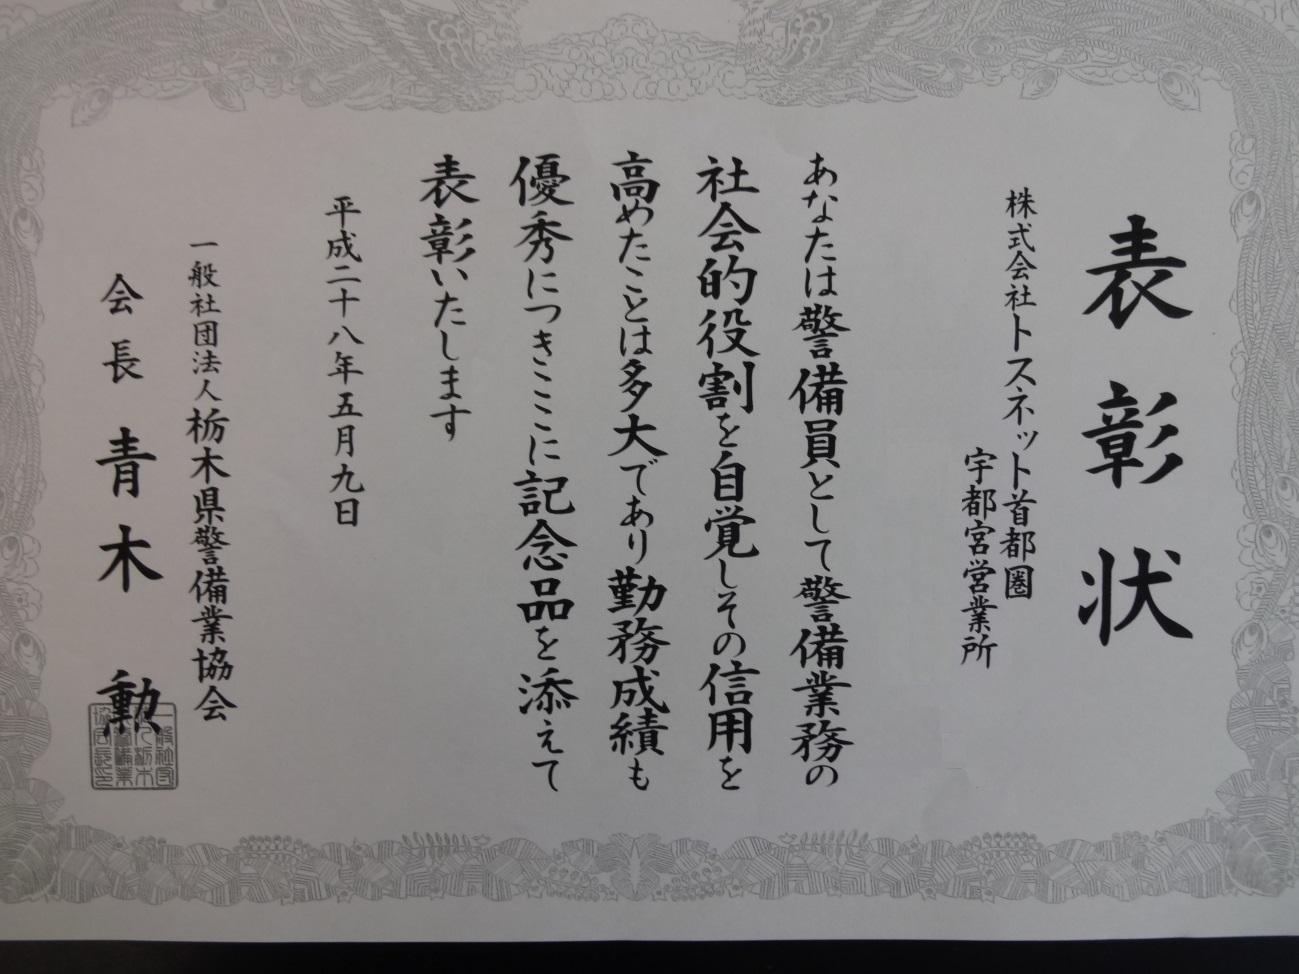 表彰状
株式会社トスネット首都圏
宇都宮営業所
あなたは警備員として警備業務の
社会的役割を自覚しその信用を
高めたことは多大であり勤務成績も
優秀につきここに記念品を添えて
表彰いたします
平成二十八年五月九日
一般社団法人栃木県警備業協会
会長青木勲